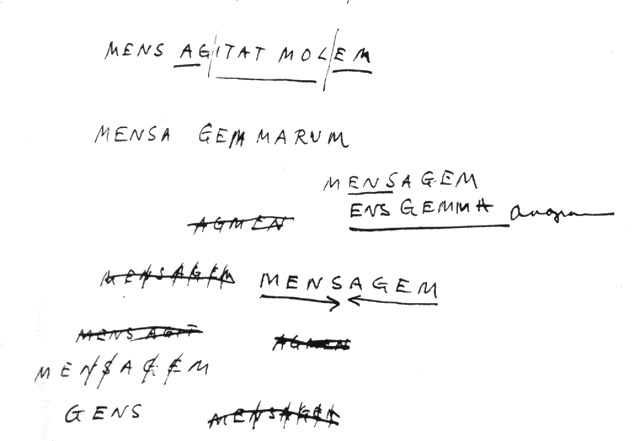 MENS AG/ITAT MOL/EM
MENSA GEMMARUM
MENSAGEM
ENS GEMMA
AGMEN
MENSAGEM MENSAGEM
MENS AGIT AGMEN
MENSAGEM
GENS MENSAGEM